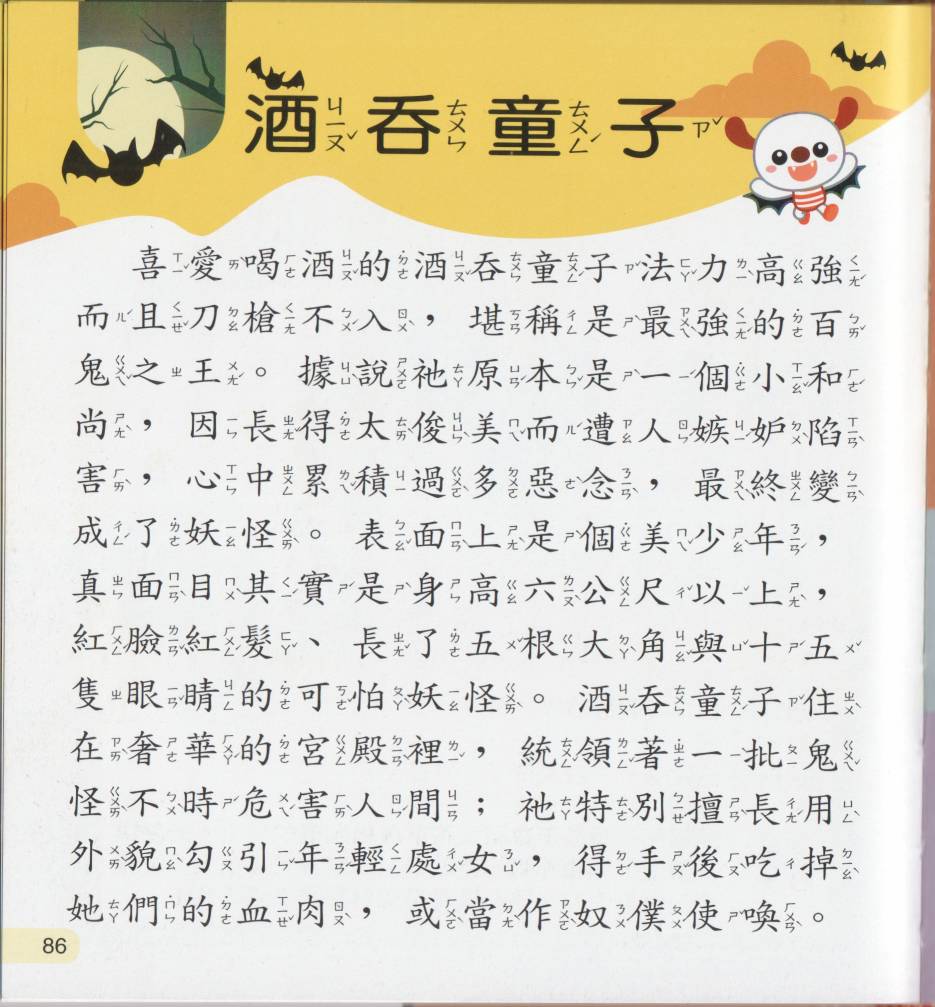 酒吞童子
喜愛喝酒的酒吞童子法力高強
而且刀槍不入，堪稱是最強的百
鬼之王。據說祂原本是一個小和
尚，因長得太俊美而遭人嫉妒陷
害，心中累積過多惡念，最終變
成了妖怪。表面上是個美少年，
真面目其實是身高六公尺以上，
紅臉紅髮、長了五根大角與十五
隻眼睛的可怕妖怪。酒吞童子住
在奢華的宮殿裡，統領著一批鬼
怪不時危害人間；祂特別擅長用
外貌勾引年輕處女，得手後吃掉
她們的血肉，或當作奴僕使喚。
86